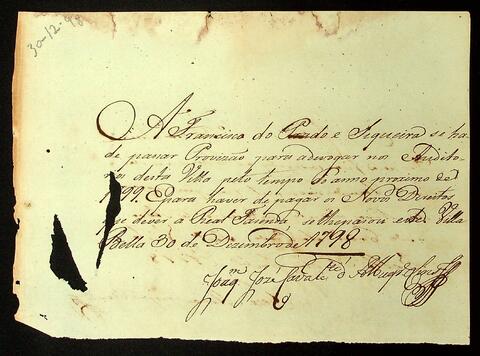 30-12-98
A Francisco do Prado e Siqueira se ha
de passar Provizão para advogar nos Audito-
rios desta Villa pelo tempo do anno proximo de
1799. E para haver de pagar os Novos Direitos
que dever á Real Fazenda se lhe passou este Villa
Bella 30 de Dezembro de 1798
Joaqm José Cavalcte d Albuqe